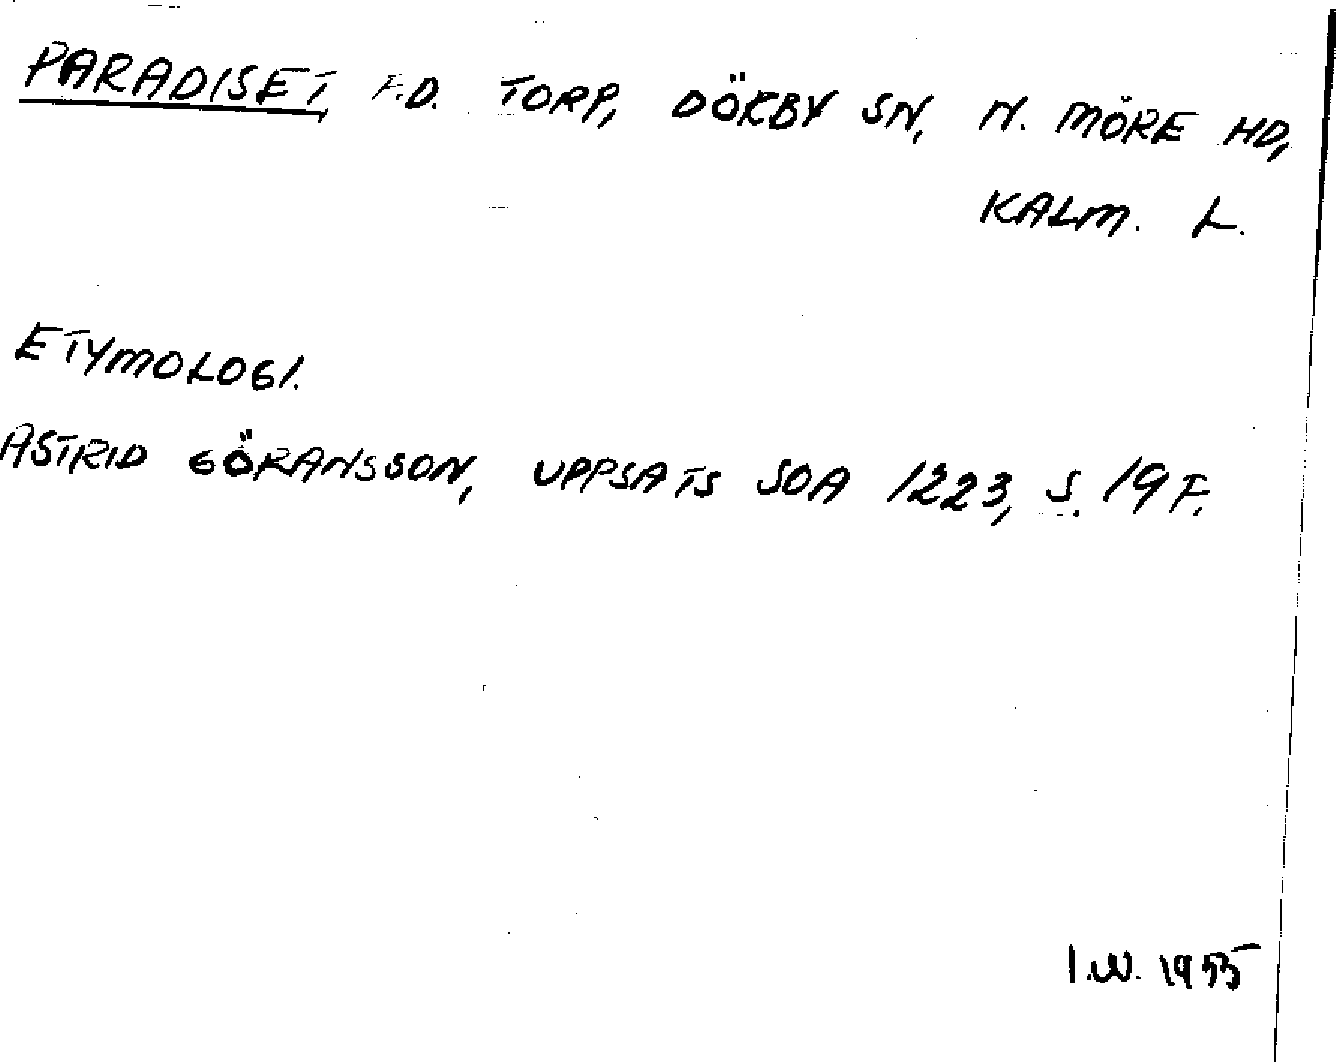 PARADISET, F.D. TORP, DÖRBY SN, N. MÖRE HD,
KALM. L.
ETYMOLOGI.
ASTRID GÖRANSSON, UPPSATS SOA 1223, S. 19 F.
I.W. 1955